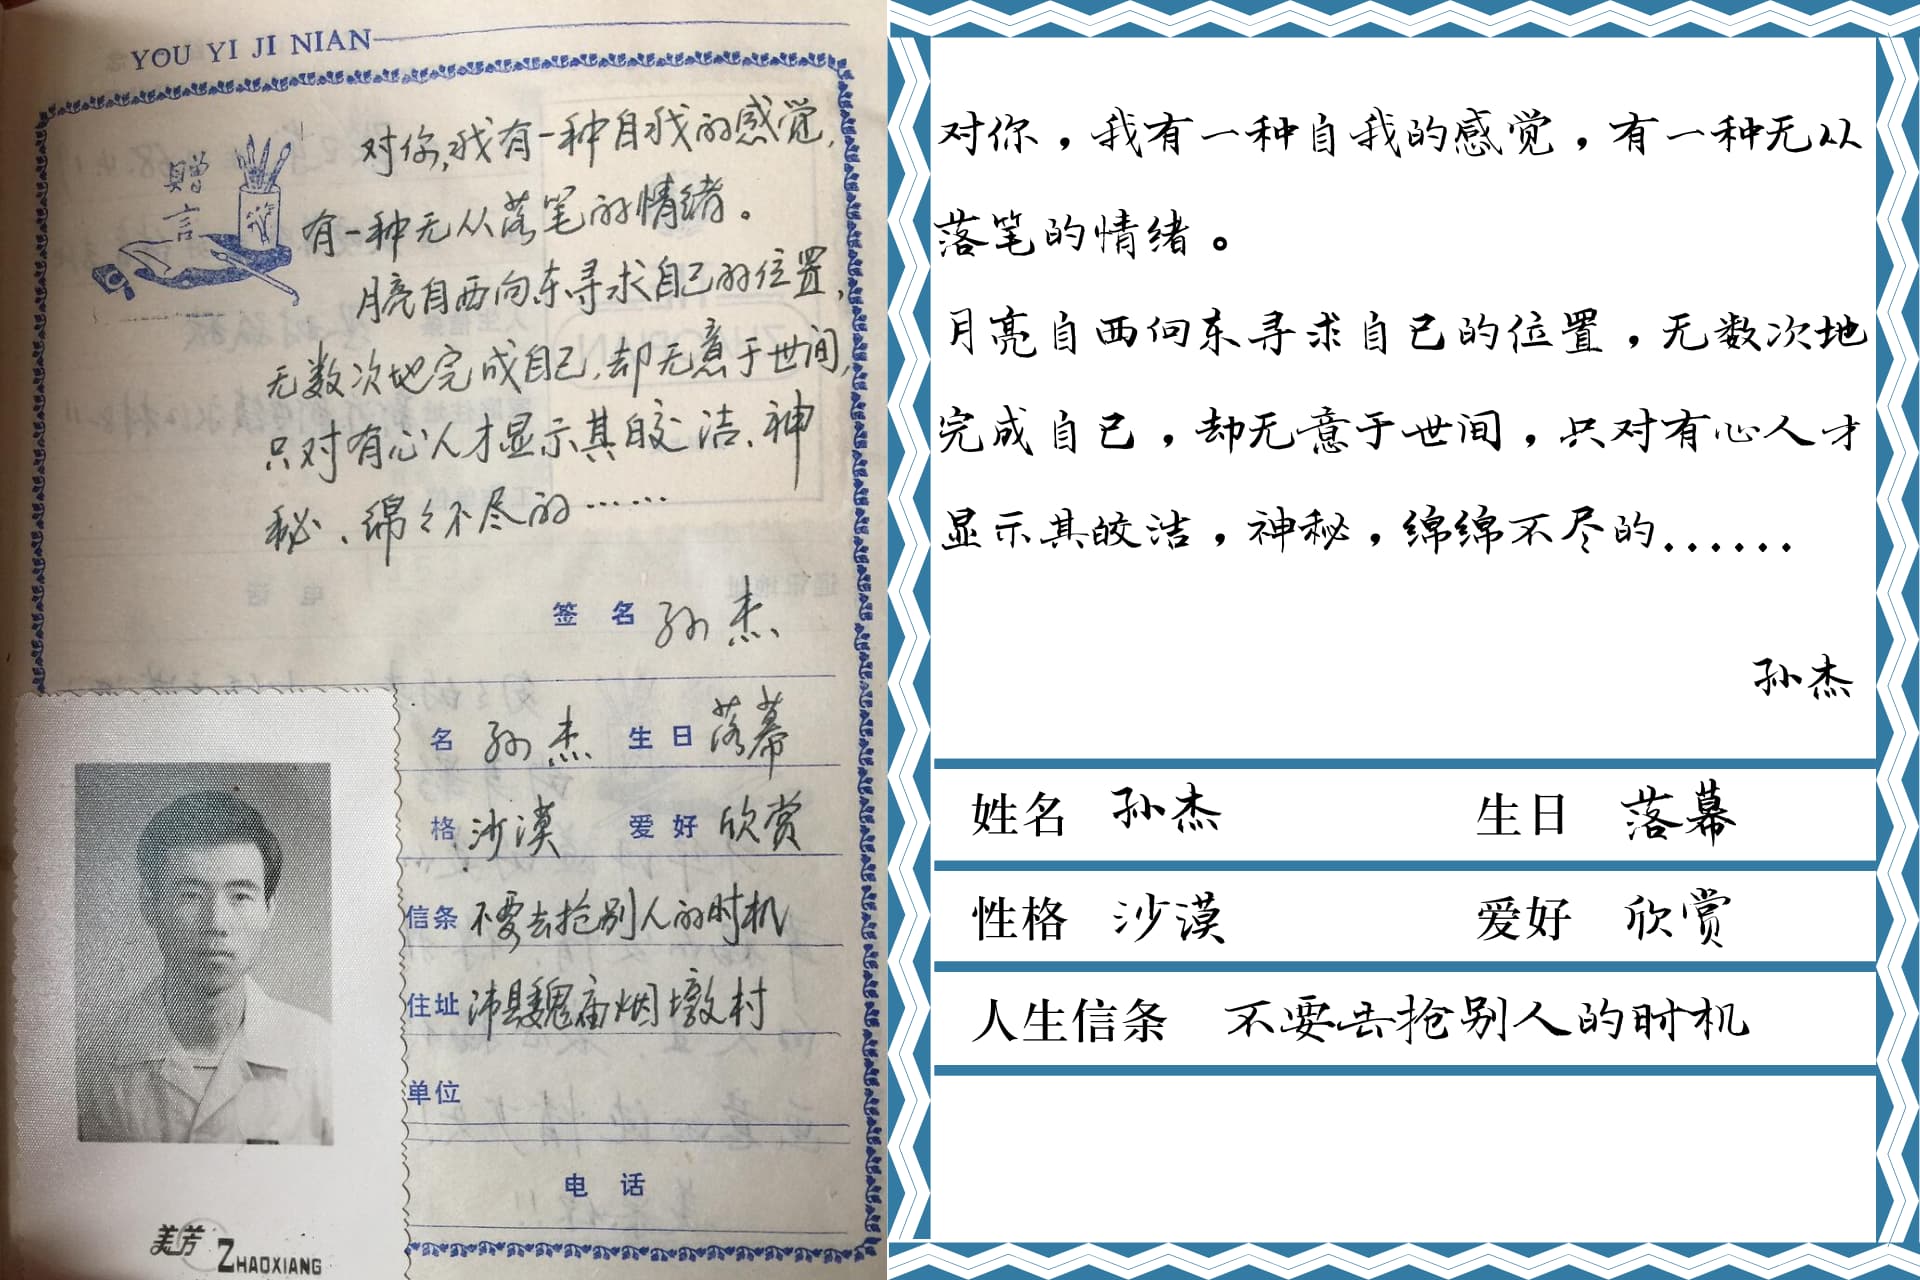 YOU YI JI NIAN
赠
言
对你,我有一种自我的感觉,
有一种无从落笔的情绪。
月亮自西向东寻求自己的位置,
无数次地完成自己,却无意于世间,
只对有心人才显示其皎洁、神
秘、绵々不尽的……
签名 孙杰
名 孙杰 生日 落幕
格 沙漠 爱好 欣赏
信条 不要去抢别人的时机
住址 沛县魏庙烟墩村
单位
电话
美芳 ZHAOXIANG
对你,我有一种自我的感觉,有一种无从
落笔的情绪。
月亮自西向东寻求自己的位置,无数次地
完成自己,却无意于世间,只对有心人才
显示其皎洁,神秘,绵绵不尽的......
孙杰
姓名 孙杰 生日 落幕
性格 沙漠 爱好 欣赏
人生信条 不要去抢别人的时机